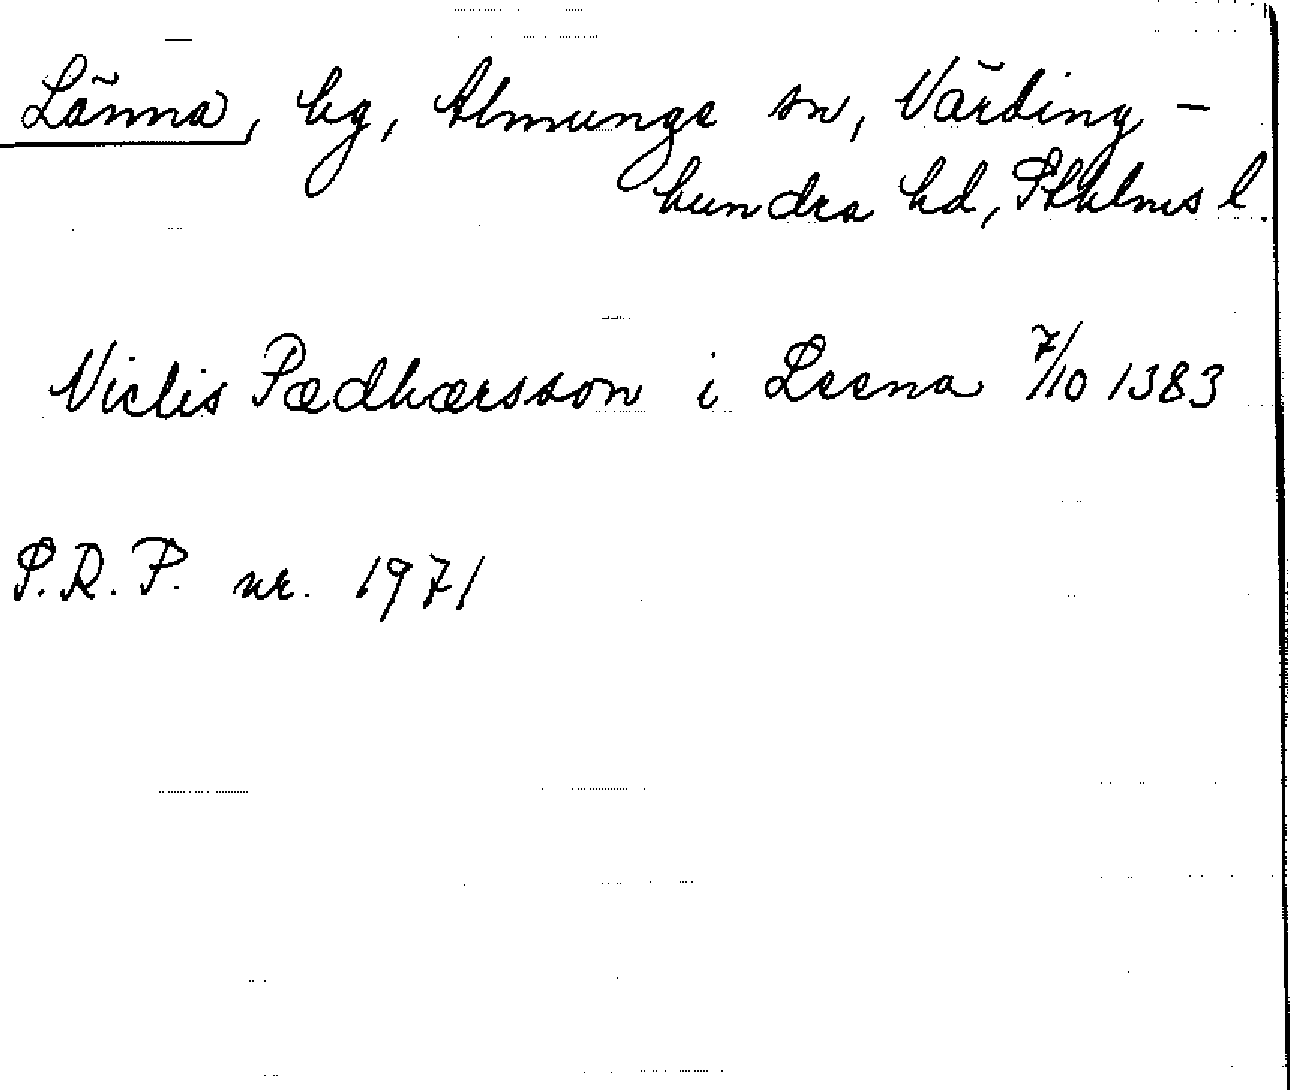 Länna, by, Almunge sn, Närding-
hundra hd, Sthlms l.
Niclis Pædhærsson i Leena 7/10 1383
S.R.P. nr. 1971